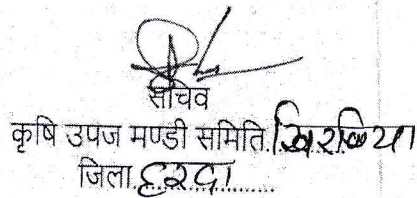 सचिव
कृषि उपज मण्डी समिति. खिरकिया
जिला. हरदा..............